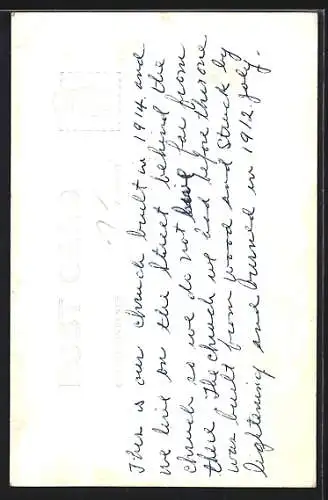 This is our church built in 1914 and
we live on the street behind the
church so we do not live far from
there The church we had before this one
was built from wood and Struck by
lightening and burned in 1912. July.
POST CARD